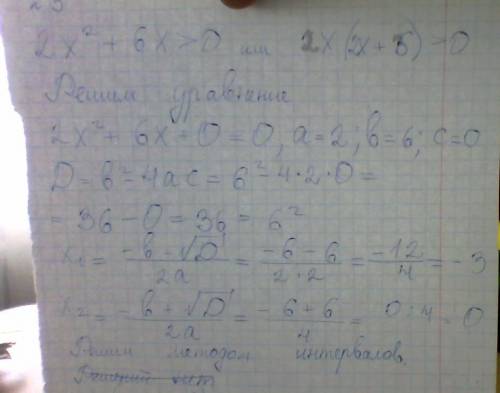 2x² + 6x > 0 или 2x(2x + 3) = 0
Решим уравнение
2x² + 6x - 0 = 0, a = 2; b = 6; c = 0
D = b² - 4ac = 6² - 4 * 2 * 0 =
= 36 - 0 = 36 = 6²
x₁ = (-b - √D)/2a = (-6 - 6)/(2 * 2) = -12/4 = -3
x₂ = (-b + √D)/2a = (-6 + 6)/4 = 0 : 4 = 0
Решим методом интервалов.